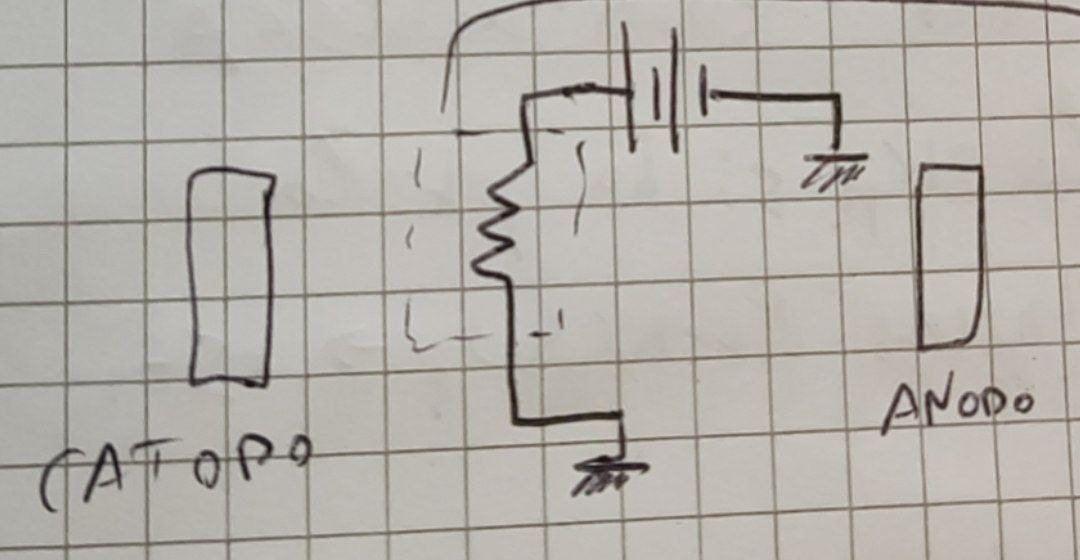 CATODO
ANODO